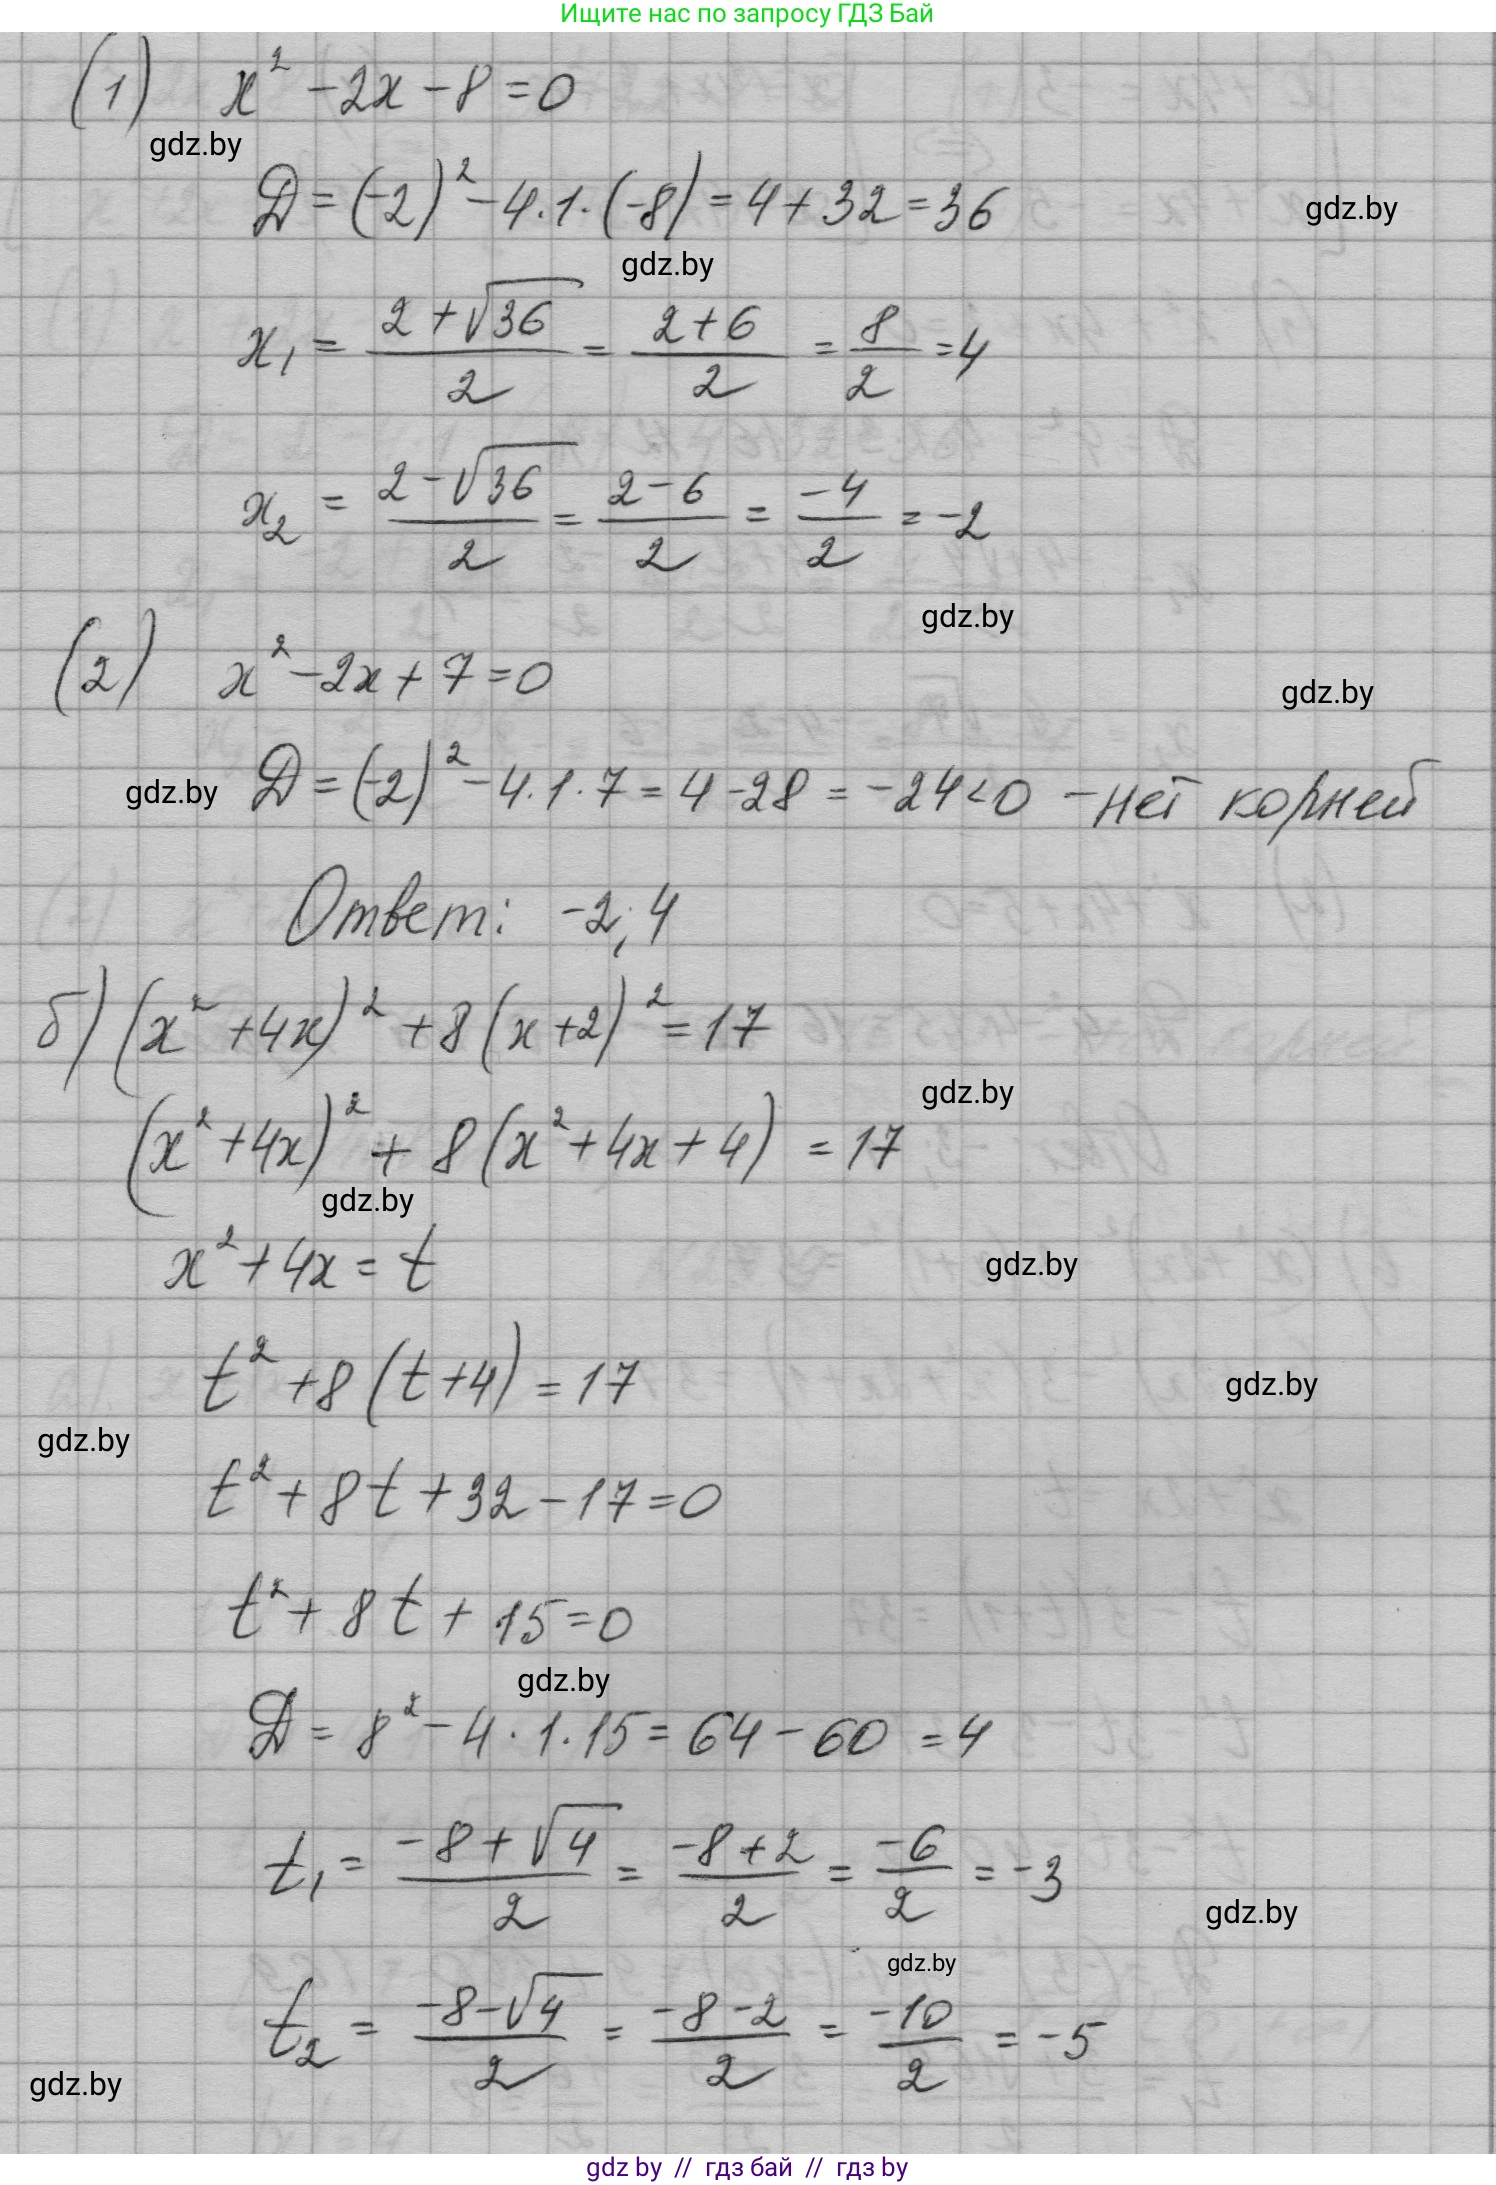 Ищите нас по запросу ГДЗ Бай
(1) x² - 2x - 8 = 0
gdz.by
D = (-2)² - 4·1·(-8) = 4 + 32 = 36
gdz.by
gdz.by
x₁ = (2 + √36)/2 = (2 + 6)/2 = 8/2 = 4
x₂ = (2 - √36)/2 = (2 - 6)/2 = -4/2 = -2
gdz.by
(2) x² - 2x + 7 = 0
gdz.by
gdz.by
D = (-2)² - 4·1·7 = 4 - 28 = -24 < 0 - нет корней
Ответ: -2; 4
б) (x² + 4x)² + 8(x + 2)² = 17
gdz.by
(x² + 4x)² + 8(x² + 4x + 4) = 17
gdz.by
x² + 4x = t
gdz.by
t² + 8(t + 4) = 17
gdz.by
gdz.by
t² + 8t + 32 - 17 = 0
t² + 8t + 15 = 0
gdz.by
D = 8² - 4·1·15 = 64 - 60 = 4
t₁ = (-8 + √4)/2 = (-8 + 2)/2 = -6/2 = -3
gdz.by
gdz.by
t₂ = (-8 - √4)/2 = (-8 - 2)/2 = -10/2 = -5
gdz.by
gdz by // гдз бай // гдз by